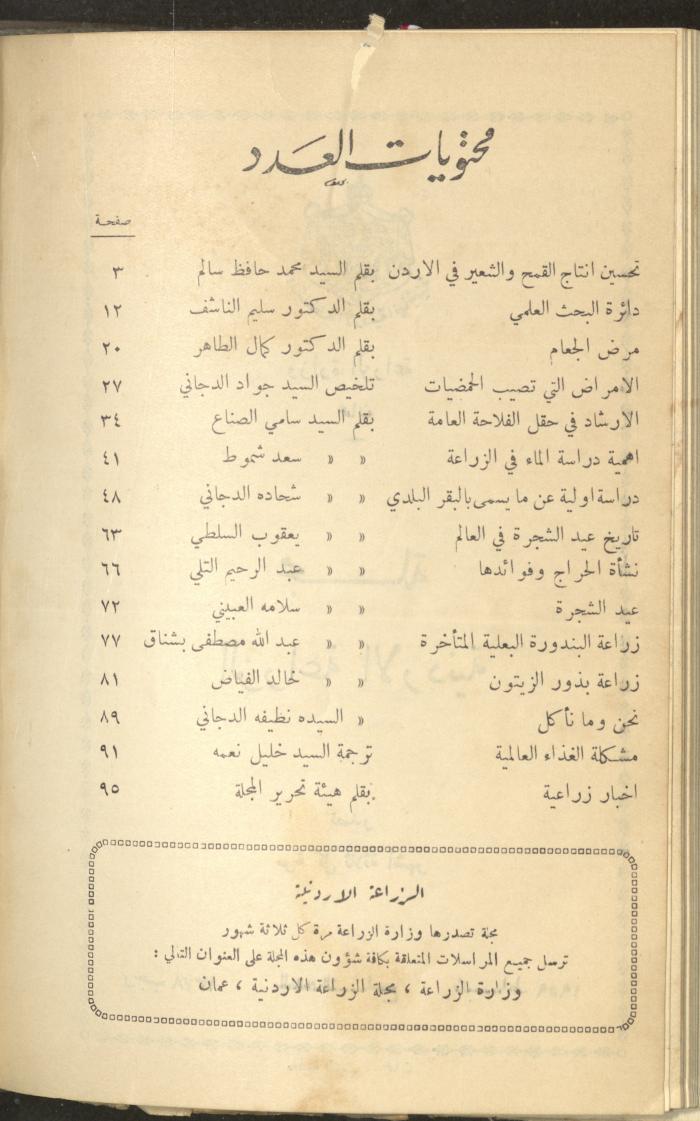 محتويات العدد
صفحة
تحسين انتاج القمح والشعير في الاردن بقلم السيد محمد حافظ سالم ٣
دائرة البحث العلمي بقلم الدكتور سليم الناشف ١٢
مرض الجعام بقلم الدكتور كمال الطاهر ٢٠
الامراض التي تصيب الحمضيات تلخيص السيد جواد الدجاني ٢٧
الارشاد في حقل الفلاحة العامة بقلم السيد سامي الصناع ٣٤
اهمية دراسة الماء في الزراعة » » سعد شموط ٤١
دراسة اولية عن ما يسمى بالبقر البلدي » » شحاده الدجاني ٤٨
تاريخ عيد الشجرة في العالم » » يعقوب السلطي ٦٣
نشأة الحراج وفوائدها » » عبد الرحيم التلي ٦٦
عيد الشجرة » » سلامه العبيني ٧٢
زراعة البندورة البعلية المتأخرة » » عبد الله مصطفى بشناق ٧٧
زراعة بذور الزيتون » » خالد الفياض ٨١
نحن وما نأكل » السيده نظيفه الدجاني ٨٩
مشكلة الغذاء العالمية ترجمة السيد خليل نعمه ٩١
اخبار زراعية بقلم هيئة تحرير المجلة ٩٥
الزراعة الاردنية
مجلة تصدرها وزارة الزراعة مرة كل ثلاثة شهور
ترسل جميع المراسلات المتعلقة بكافة شؤون هذه المجلة على العنوان التالي :
وزارة الزراعة ، مجلة الزراعة الاردنية ، عمان